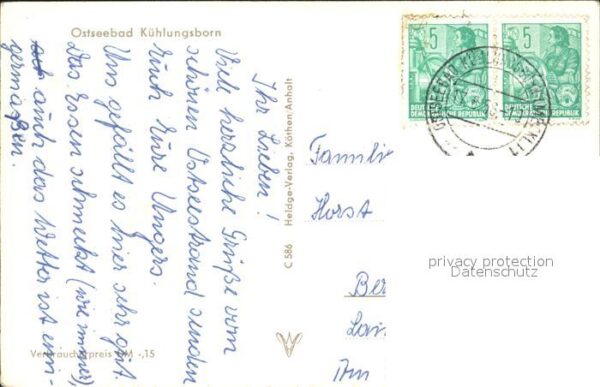 Ostseebad Kühlungsborn
Ihr Lieben!
Viele herzliche Grüße vom
schönen Ostseestrand senden
Euch Eure Ungers.
Uns gefällt es hier sehr gut.
Das Essen schmeckt (wie immer),
auch das Wetter ist eini-
germaßen.
Verbraucherpreis DM -,15
C 586 Heldge-Verlag, Köthen/Anhalt
5
DEUTSCHE
DEMOKRATISCHE REPUBLIK
5
DEUTSCHE
DEMOKRATISCHE REPUBLIK
OSTSEEBAD KÜHLUNGSBORN
Familie
Horst
Ber
Am
privacy protection
Datenschutz